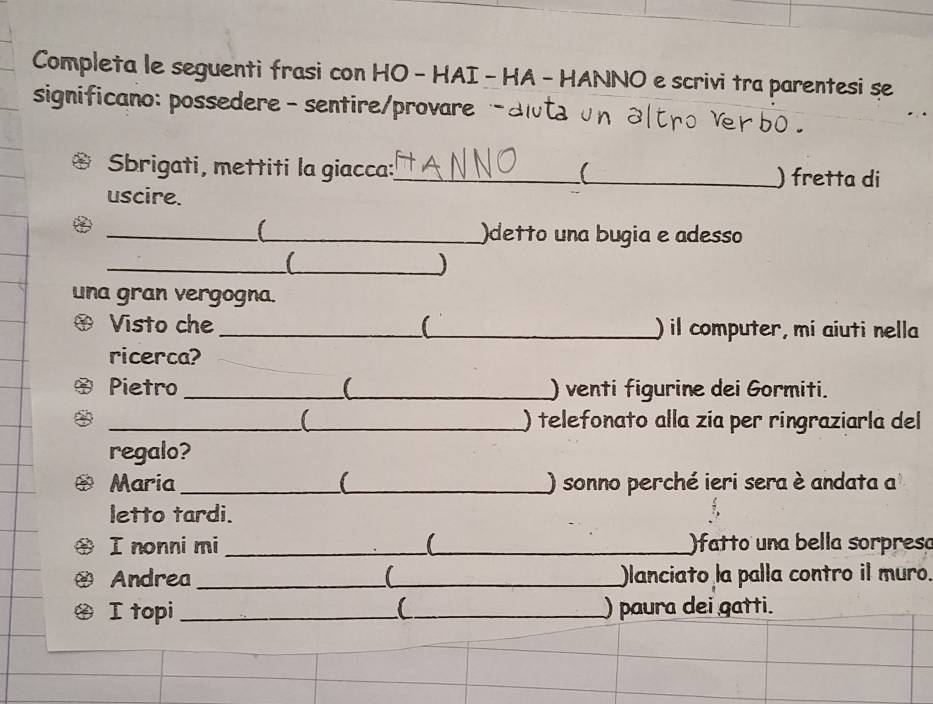 Completa le seguenti frasi con HO - HAI - HA - HANNO e scrivi tra parentesi se
significano: possedere - sentire/provare - aiuta un altro verbo.
Sbrigati, mettiti la giacca: HANNO (__________) fretta di
uscire.
__________(__________)detto una bugia e adesso
__________(__________)
una gran vergogna.
Visto che __________(__________) il computer, mi aiuti nella
ricerca?
Pietro __________(__________) venti figurine dei Gormiti.
__________(__________) telefonato alla zia per ringraziarla del
regalo?
Maria __________(__________) sonno perché ieri sera è andata a
letto tardi.
I nonni mi __________(__________)fatto una bella sorpresa
Andrea __________(__________)lanciato la palla contro il muro.
I topi __________(__________) paura dei gatti.